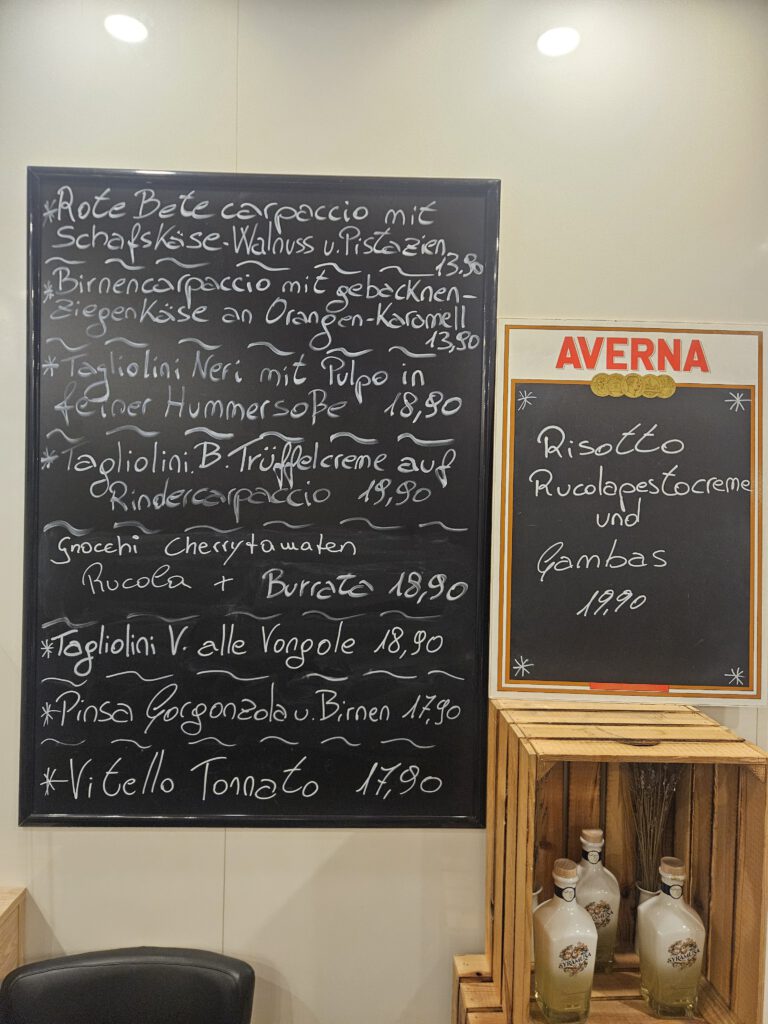 *Rote Bete carpaccio mit
Schafskäse-Walnuss u. Pistazien
13.90
*Birnencarpaccio mit gebacknen-
Ziegenkäse an Orangen-Karamell
13,90
*Tagliolini Neri mit Pulpo in
feiner Hummersoße 18,90
*Tagliolini. B. Trüffelcreme auf
Rindercarpaccio 19,90
Gnocchi Cherrytamaten
Rucola + Burrata 18,90
*Tagliolini V. alle Vongole 18,90
*Pinsa Gorgonzola u. Birnen 17,90
*Vitello Tonnato 17,90
AVERNA
Risotto
Rucolapestocreme
und
Gambas
19,90
SYRAMUSA
SYRAMUSA